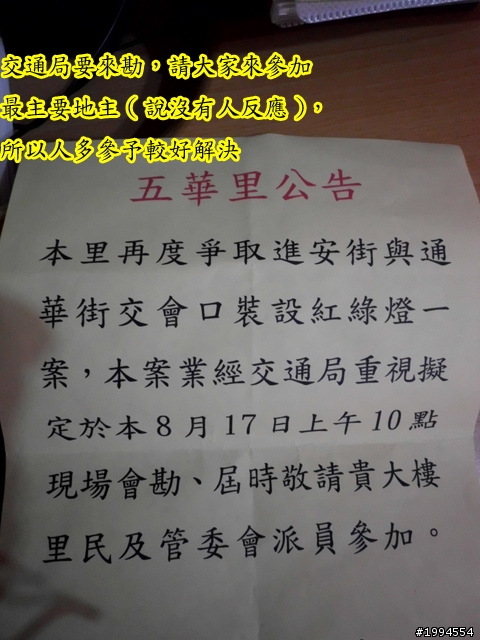 交通局要來勘，請大家來參加
最主要地主（說沒有人反應），
所以人多參予較好解決
五華里公告
本里再度爭取進安街與通
華街交會口裝設紅綠燈一
案，本案業經交通局重視擬
定於本8月17日上午10點
現場會勘、屆時敬請貴大樓
里民及管委會派員參加。
#1994554